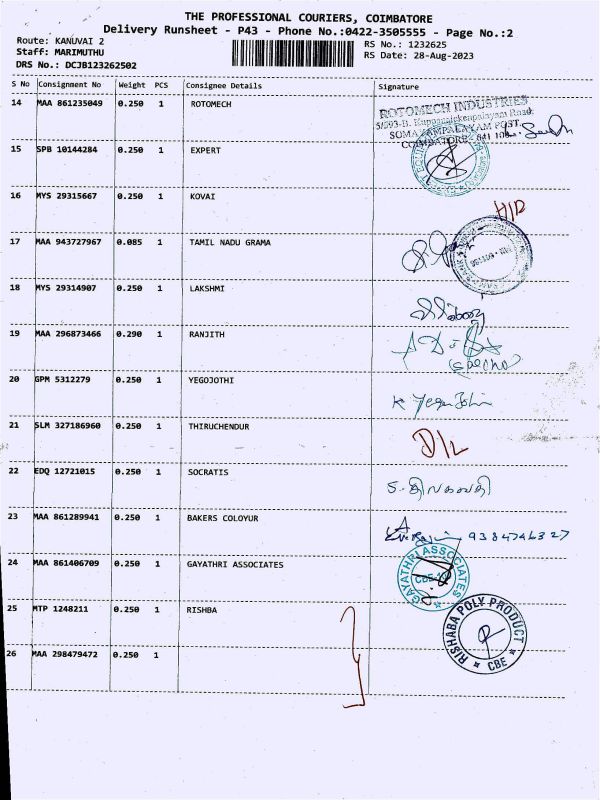 THE PROFESSIONAL COURIERS, COIMBATORE
Delivery Runsheet - P43 - Phone No.:0422-3505555 - Page No.:2
Route: KANUVAI 2
RS No.: 1232625
Staff: MARIMUTHU
RS Date: 28-Aug-2023
DRS No.: DCJB123262502
S No Consignment No Weight PCS Consignee Details Signature
14 MAA 861235049 0.250 1 ROTOMECH
ROTOMECH INDUSTRIES
5/293-B, Kuppanaickenpalayam Road,
SOMAYAMPALAYAM POST,
COIMBATORE - 641 108
15 SPB 10144284 0.250 1 EXPERT
16 MYS 29315667 0.250 1 KOVAI
H/D
17 MAA 943727967 0.085 1 TAMIL NADU GRAMA
18 MYS 29314907 0.250 1 LAKSHMI
19 MAA 296873466 0.290 1 RANJITH
20 GPM 5312279 0.250 1 YEGOJOTHI
K Yegojothi
21 SLM 327186960 0.250 1 THIRUCHENDUR
D/L
22 EDQ 12721015 0.250 1 SOCRATIS
S. திலகவதி
23 MAA 861289941 0.250 1 BAKERS COLOYUR
9384746327
24 MAA 861406709 0.250 1 GAYATHRI ASSOCIATES
GAYATHRI ASSOCIATES
25 MTP 1248211 0.250 1 RISHBA
RISHABA POLY PRODUCT
CBE
26 MAA 298479472 0.250 1